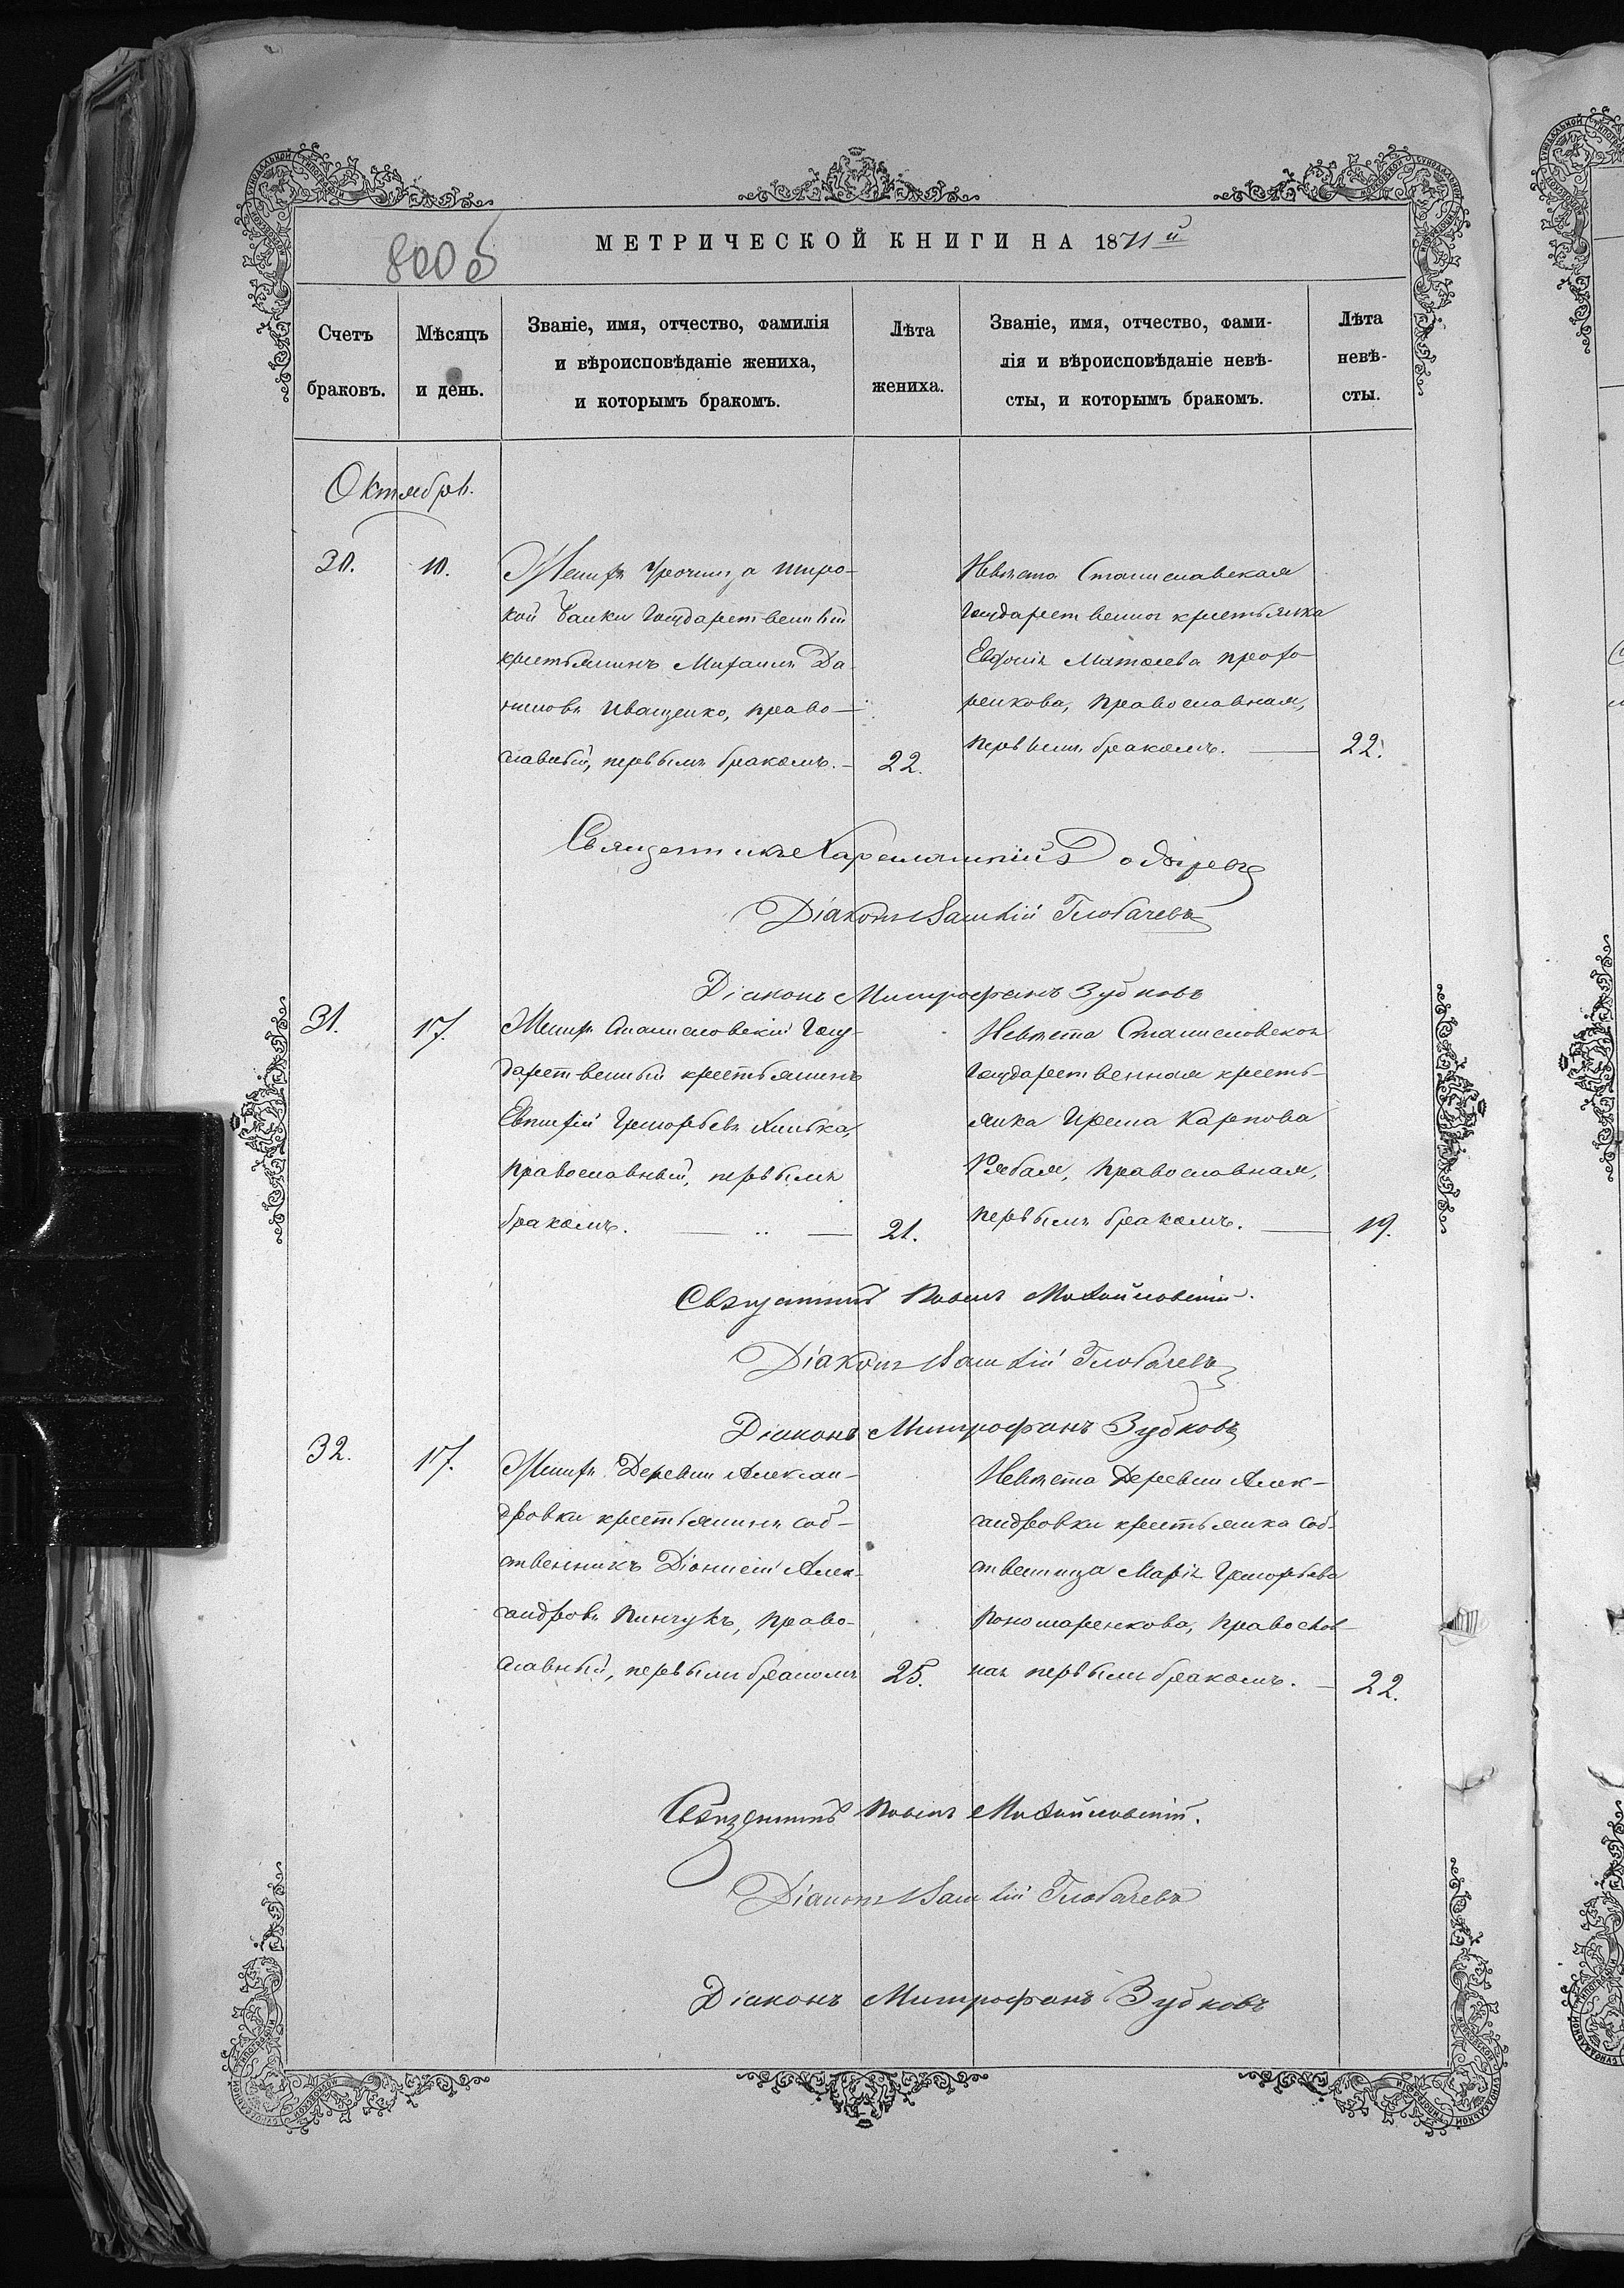 800б
МЕТРИЧЕСКОЙ КНИГИ НА 1871й
Счетъ браковъ.
Мѣсяцъ и день.
Званіе, имя, отчество, фамилія
и вѣроисповѣданіе жениха,
и которымъ бракомъ.
Лѣта
жениха.
Званіе, имя, отчество, фами-
лія и вѣроисповѣданіе невѣ-
сты, и которымъ бракомъ.
Лѣта
невѣ-
сты.
Октябрь.
30.
10.
Женихъ Урочища широ-
кой балки Государственный
крестьянинъ Михаилъ Да-
ниловъ Иващенко, право-
славный, первымъ бракомъ.
22.
Невѣста Станиславская
Государственная крестьянка
Евфосія Матвеева Прохо-
ренкова, Православная,
первымъ бракомъ.
22.
Священникъ Харлампій
Діаконъ Глобачевъ
Діаконъ Митрофанъ Зубковъ
31.
17.
Женихъ Станиславскій Госу-
дарственный крестьянинъ
Евтихій Григорьевъ Хилька,
Православный, первымъ
бракомъ.
21.
Невѣста Станиславская
Государственная кресть-
янка Ирина Карпова
Рябая, Православная,
первымъ бракомъ.
19.
Священникъ Павелъ Михайловскій.
Діаконъ Глобачевъ
Діаконъ Митрофанъ Зубковъ
32.
17.
Женихъ Деревни Алексан-
дровки крестьянинъ соб-
ственникъ Діонисій Алек-
сандровъ Пинчукъ, Право-
славный, первымъ бракомъ
25.
Невѣста Деревни Алек-
сандровки крестьянка соб-
ственница Марія Григорьева
Пономаренкова, Православ-
ная первымъ бракомъ.
22.
Священникъ Павелъ Михайловскій.
Діаконъ Глобачевъ
Діаконъ Митрофанъ Зубковъ